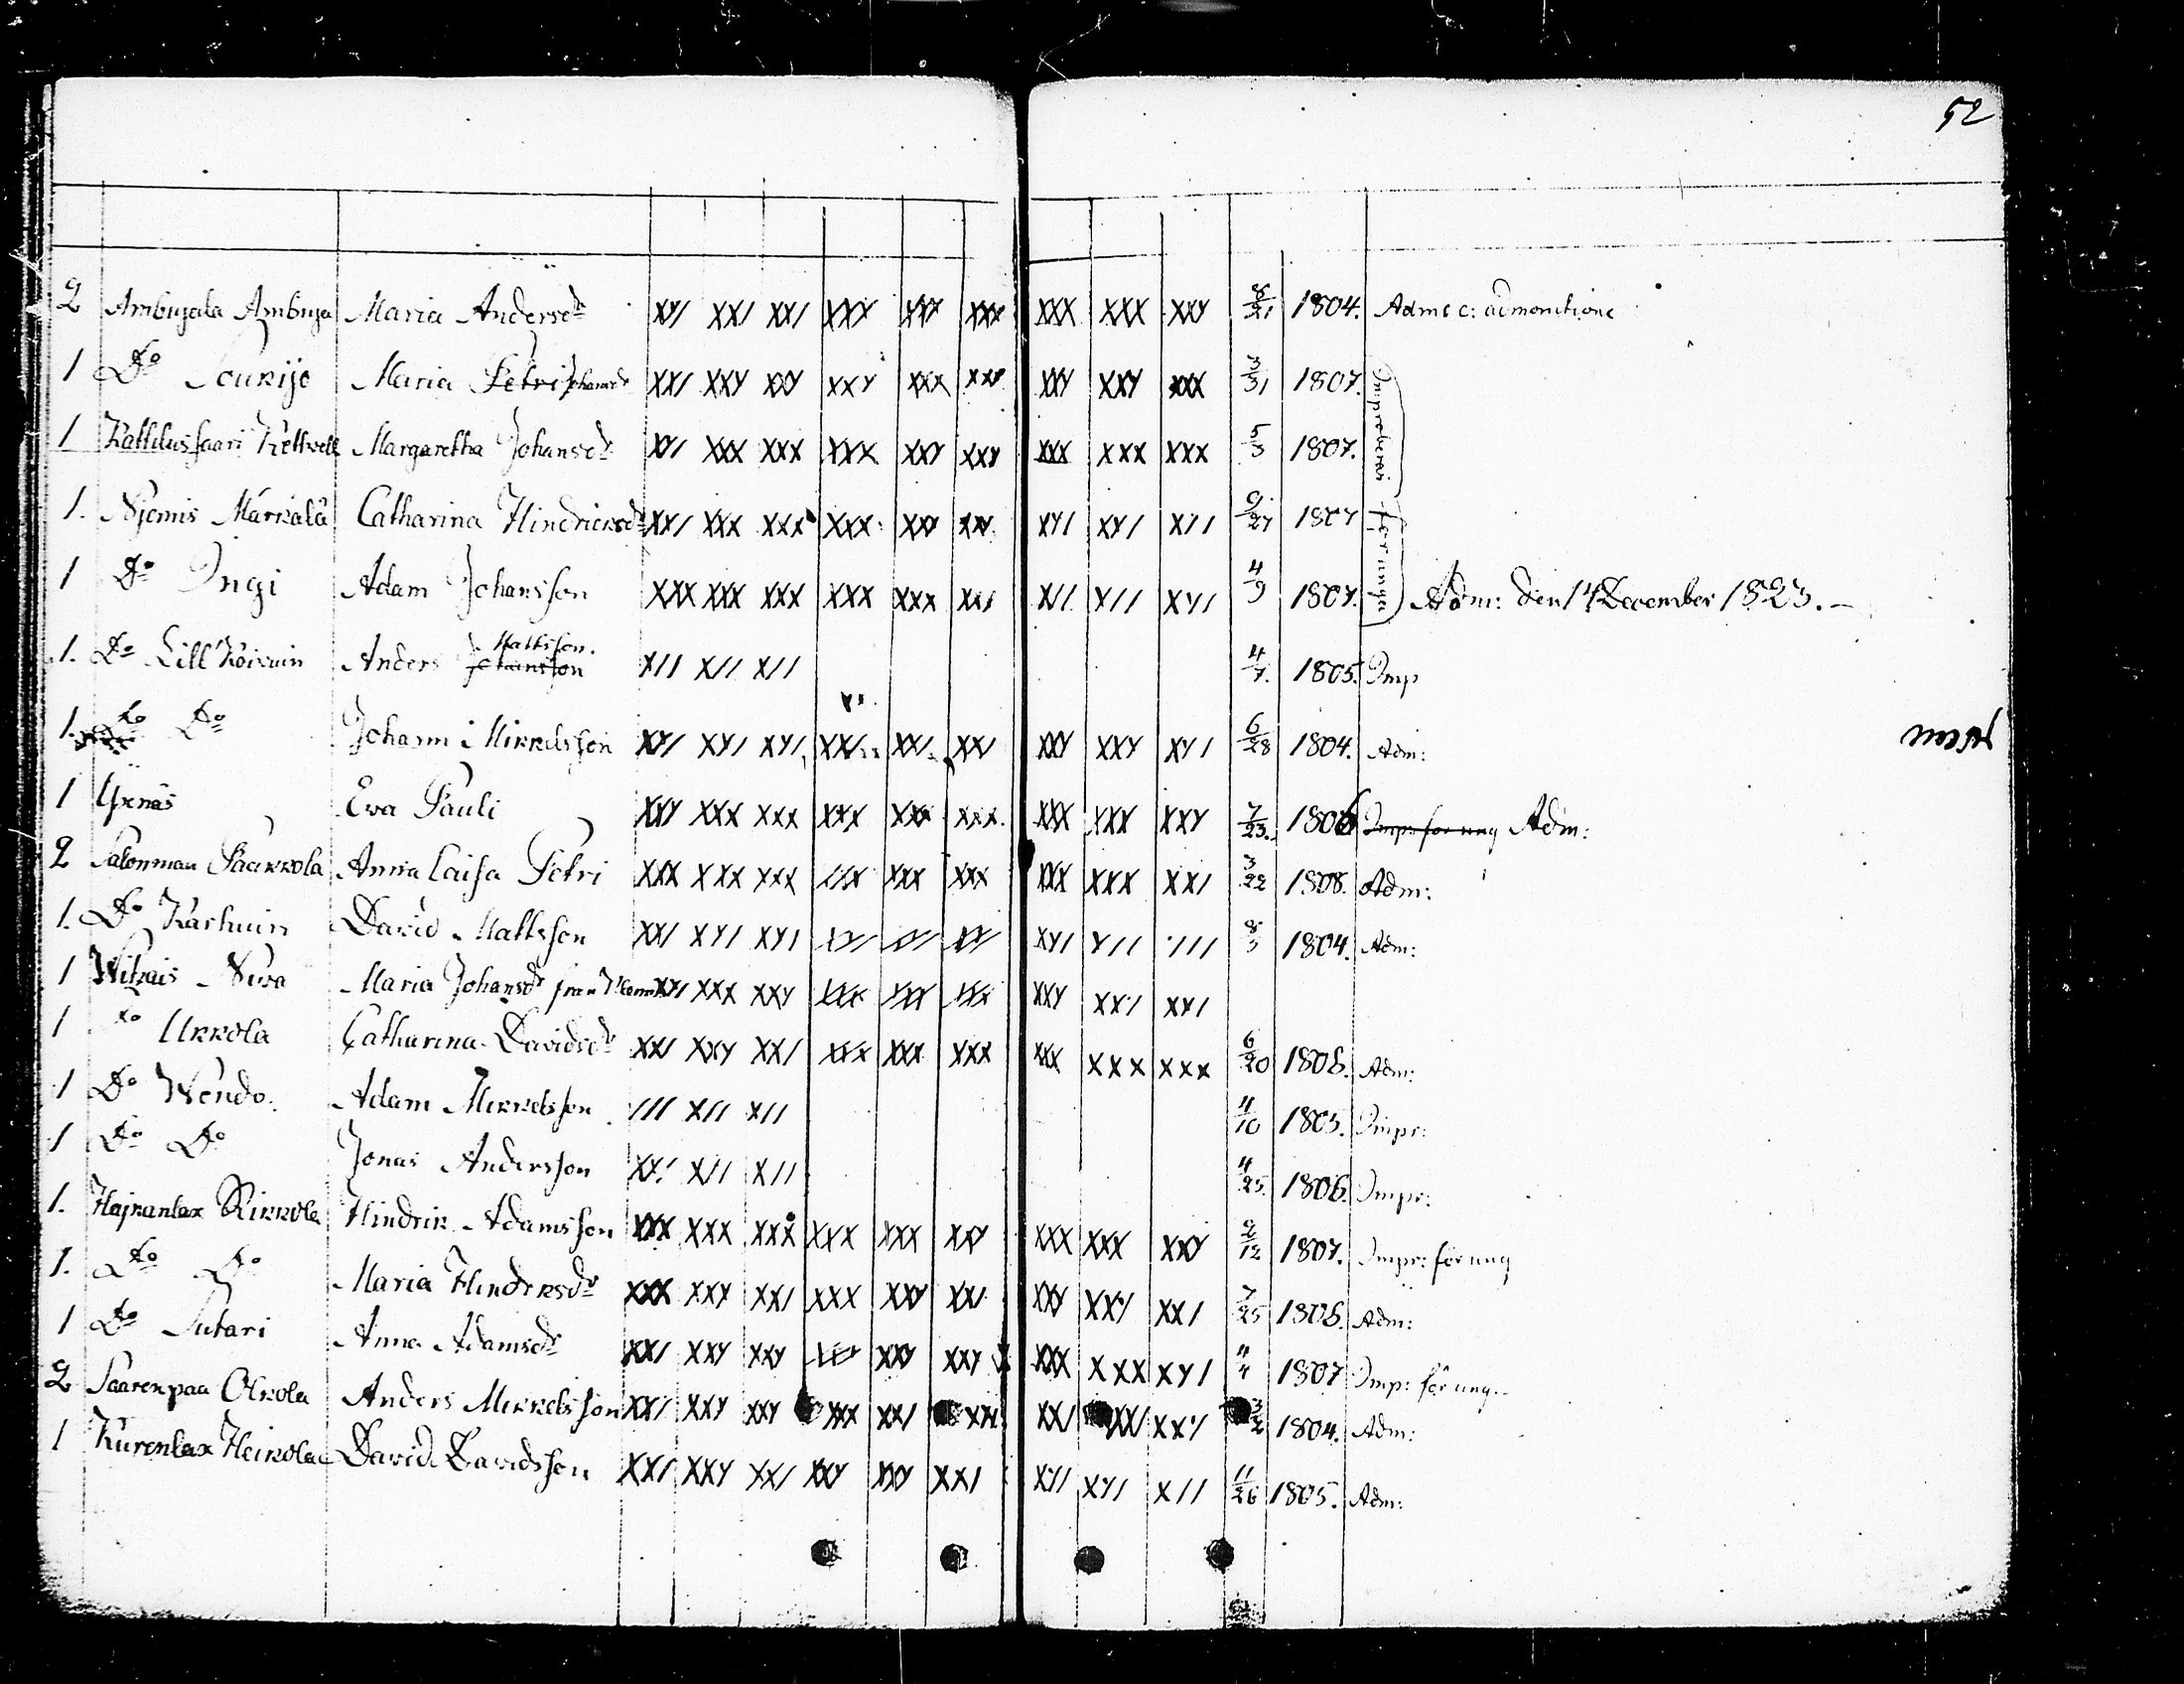 52
2 Ambuyala Ambuya Maria Andersdr XXI XXI XXI XXX XXX XXX XXX XXX XXY 8/21 1804. Adm: c: admonitione
1 Do Maria Petri Johansdr XXI XXY XXY XXY XXX XXY XXY XXY XXX 3/31 1807.
1 Margaretha Johansdr XXI XXX XXX XXX XXY XXY XXX XXX XXX 5/3 1807.
1. Njemis Markala Catharina Hindricksdr XXI XXX XXX XXX XXY XXY XYI XYI XII 9/27 1807
1 Do Ingi Adam Johansson XXX XXX XXX XXX XXX XXI XII XII XYI 4/9 1807. Adm: den 14 December 1823.
Improberas för unga
1. Do Lill Koivuin Anders Johansson Mattsson. XII XII XII 4/7. 1805. Imp
1. Do Do Johann Mickelsson XYI XYI XYI XXI XXI XXI XXY XXY XYI 6/28 1804. Adm:
1 Yxnäs Ewa Pauli XXY XXX XXX XXX XXX XXX XXX XXX XXY 7/23. 1806 Imp: för ung Adm:
2 Salonmaa Paarkkola Anna Caisa Petri XXX XXX XXX IIX XXX XXX XXX XXX XXI 3/22 1808. Adm:
1. Do Karhuin David Mattsson XXI XYI XYI XYI YII III 8/3 1804. Adm:
1 Wikais Niva Maria Johansdr från XXI XXX XXY XXX XXX XXX XXY XXI XXI
1 Do Ukkola Catharina Davidsdr XXI XXY XXI XXX XXX XXX XXX XXX XXX 6/20 1806. Adm:
1 Do Wendo. Adam Mickelsson III XII XII 11/10 1805. Impr:
1 Do Do Jonas Andersson XXI XII XII 11/25. 1806. Impr:
1. Hajkanlax Kirkkola Hindrik Adamsson XXX XXX XXX XXX XXX XXY XXX XXX XXY 2/12 1807. Impr: för ung
1. Do Do Maria Hindriksdr XXX XXY XXI XXX XXY XXI XXY XXI XXI 7/25 1806. Adm:
1 Do Sutari Anna Adamsdr XXI XXY XXY XXY XXY XXX XXX XYI 11/4 1807 Imp: för ung.
2 Saarenpaa Olkola Anders Mickelsson XXI XXY XXY XXX XXI XXI XXI XXI XXI 3/2 1804. Adm:
1 Kurenlax Heikola David Davidsson XXI XXY XXI XXY XXY XXI XYI XYI XII 11/26 1805. Adm: